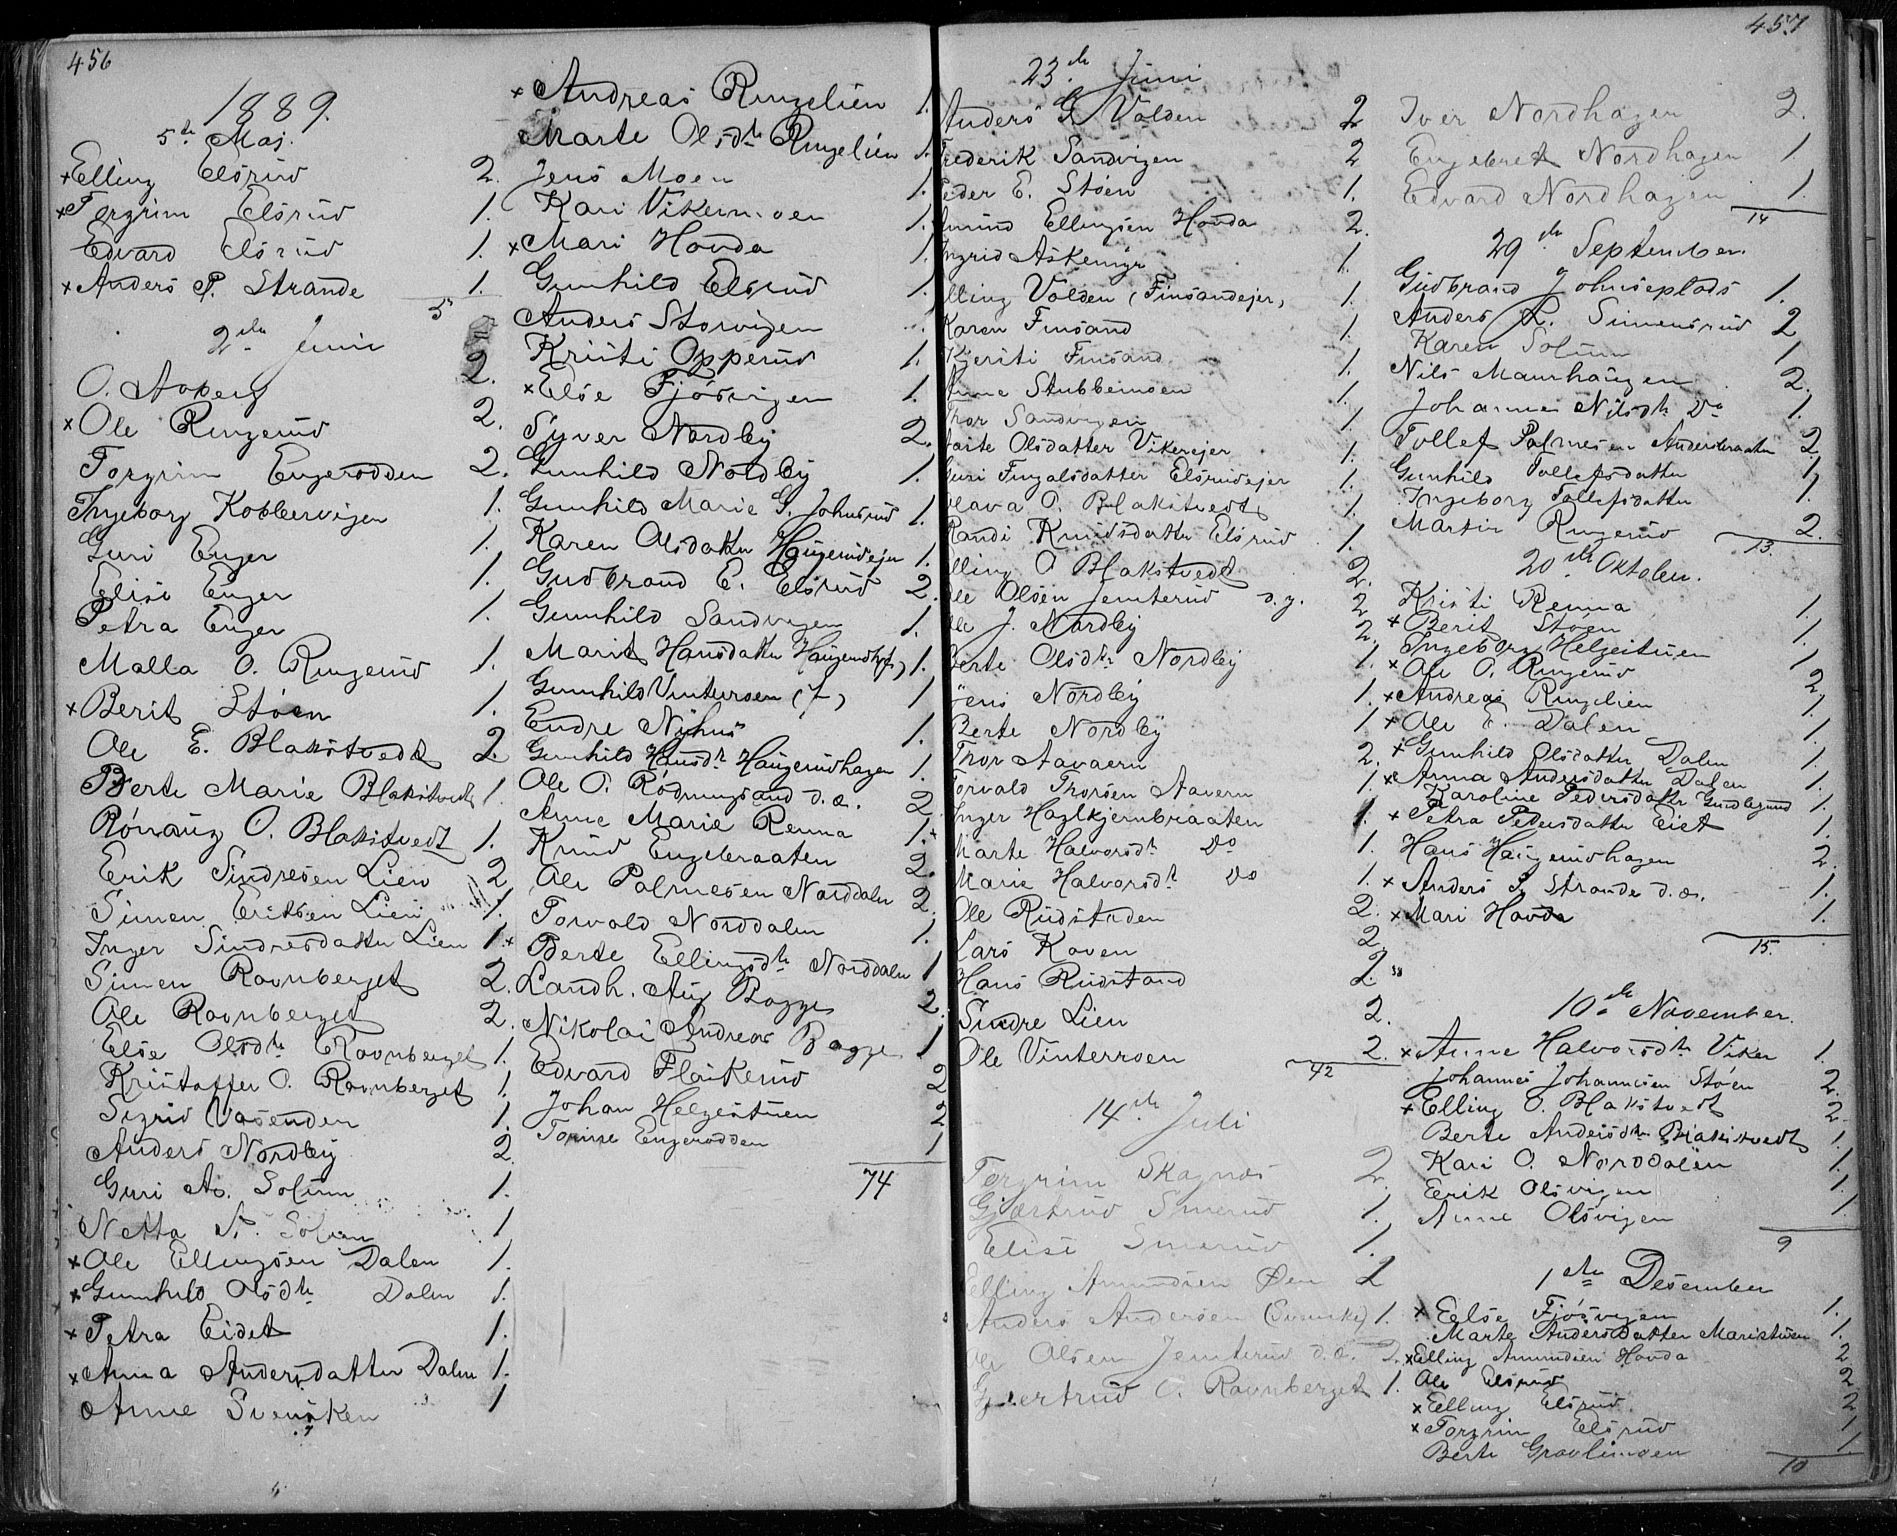 456
1889.
5te Maj.
× Elling Elsrud 2.
× Torgrim Elsrud 1.
Edvard Elsrud 1.
× Anders P. Strande 1.
5
2den Juni
O. Aaberg 2.
× Ole Ringerud 2.
Torgrim Engerodden 2.
Ingeborg Kobbervigen 1.
Guri Enger 1.
Elise Enger 1.
Petra Enger 1.
Malla O. Ringerud 1.
× Berit Støen 1.
Ole E. Blakstvedt 2
Berte Marie Blakstvedt 1.
Rønaug O. Blakstvedt 1.
Erik Sindresen Lien 2
Simen Eriksen Lien 1.
Inger Sindresdatter Lien 1.
Simen Ravnberget 2.
Ole Ravnberget 2.
Else Olsdtr Ravnberget 1.
Kristoffer O. Ravnberget 1.
Sigrid Vasenden 1.
Anders Nordby 2.
Guri As. Solum 1.
Netta A. Solum 1
× Ole Ellingsen Dalen 1.
× Gunhild Olsdtr Dalen 1.
× Petra Eidet 1.
× Anna Andersdatter Dalen 1.
Anne Svensken 1
× Andreas Ringelien 1.
Marte Olsdtr Ringelien 1.
Jens Moen 1.
Kari Vikermoen 1.
× Mari Hovda 1.
Gunhild Elsrud 1.
Anders Storvigen 1.
Kristi Opperud 1.
× Else Fjøsvigen 1.
Syver Nordby 2.
Gunhild Nordby 1.
Gunhild Marie G. Johnsrud 1.
Karen Olsdatter Haugerudejer 1.
Gudbrand E. Elsrud 2.
Gunhild Sandvigen 1.
Marit Hansdatter 1.
Gunhild Vinterroen (f) 1
Endre Nyhus 1.
Gunhild Hansdtr Haugerudhagen 1.
Ole O. Rødningsand d.æ. 2
Anne Marie Renna 1.
Knud Engebraaten 2.
Ole Palmesen Norddalen 2.
Torvald Norddalen 1.
× Berte Ellingsdtr Norddalen 1
Landh. Aug Bagge 2.
Nikolai Andreas Bagge 1
Edvard Flaskerud 2
Johan Helgestuen 2
Torine Engerodden 1
74
457
23de Juni
Anders G. Volden 2
Frederik Sandvigen 2
Peder E. Støen 1.
Amund Ellingsen Hovda 2.
Ingrid Askemyr 1.
Elling Volden (Finsandejer) 1.
Karen Finsand 1.
Kjersti Finsand 1.
Anne Stubbemoen 1.
Thor Sandvigen 1
Marte Olsdatter Vikerejer 1.
Guri Fingalsdatter Elsrudejer 1.
Olava O. Blakstvedt 1
Randi Knudsdatter Elsrud 1.
Elling O Blakstvedt 2.
Ole Olsen Jemterud d.y. 2
Ole J. Nordby 2.
Berte Olsdtr Nordby 1.
Jens Nordby 1.
Berte Nordby 1
Thor Aavaern 2.
Torvald Thorsen Aavern 1.
Inger Haglkjernbraaten 1.
× Marte Halvorsdtr Do 1.
Marie Halvorsdtr Do 1.
Ole Rudstaden 2.
Lars Koven 2.
Hans Rudstand 2.
Sindre Lien 2.
Ole Vinterroen 2.
42
14de Juli
Torgrim Skagnæs 2.
Gjærtrud Smerud 1.
Elise Smerud 1.
Elling Amundsen Øen 2
Anders Andersen (Svenske) 1.
Ole Olsen Jemterud d.æ. 2.
Gjertrud O. Ravnberget 1.
Iver Nordhagen 2.
Engebret Nordhagen 1.
Edvard Nordhagen 1.
14
29de September.
Gudbrand Johnseplads 1.
Anders L. Simensrud 2
Karen Solum 1
Nils Maurhaugen 2.
Johanne Nilsdtr Do 1.
Tollef Palmesen Andersbraaten 2
Gunhild Tollefsdatter 1
Ingeborg Tollefsdatter 1.
Martin Ringerud 2.
13.
20de Oktober.
Kristi Renna 1.
× Berit Støen 1.
Ingeborg Helgestuen 1
× Ole O. Ringerud 2
× Andreas Ringelien 1.
× Ole E. Dalen 1
× Gunhild Olsdatter Dalen 1.
× Anna Andersdatter Dalen 1.
Karoline Pedersdatter 1.
× Petra Pedersdatter Eiet 1.
Hans Haugerudhagen 2.
× Anders P. Strande d.æ. 1.
× Mari Hovda 1.
15.
10de November.
× Anne Halvorsdtr Viker 1.
Johannes Johannesen Støen 2.
× Elling O. Blakstvedt 2.
Berte Andersdtr Blakstvedt 1.
Kari O. Norddalen 1.
Erik Olsvigen 1.
Anne Olsvigen 1
9
1ste Desember
× Else Fjøsvigen 1.
Marte Andersdatter Maristuen 1.
× Elling Amundsen Hovda 2
Ole Elsrud 2
× Elling Elsrud 2
× Torgrim Elsrud 1
Berte Gravlimoen 1.
10